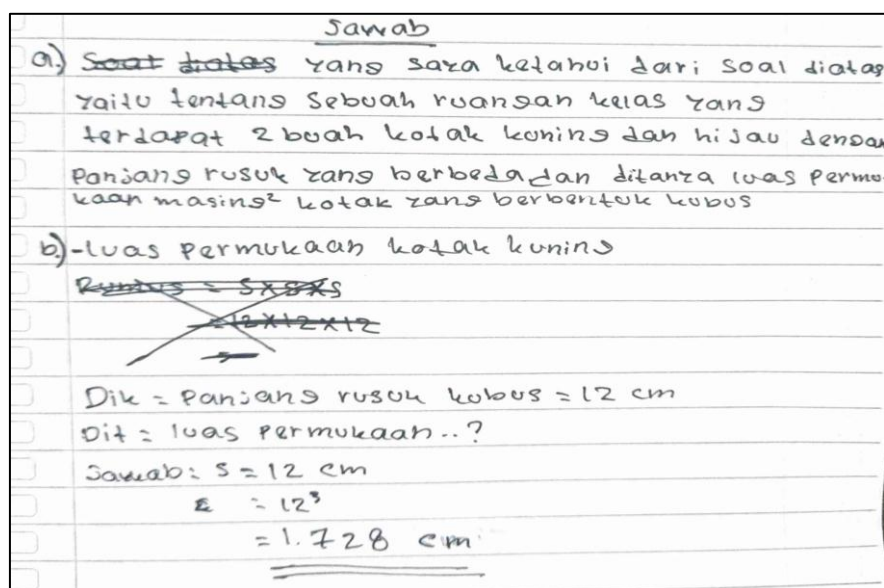 Jawab
a.) Soat diatas yang saya ketahui dari soal diatas
yaitu tentang sebuah ruangan kelas yang
terdapat 2 buah kotak kuning dan hijau dengan
panjang rusuk yang berbeda, dan ditanya luas permu-
kaan masing² kotak yang berbentuk kubus
b.) - luas permukaan kotak kuning
Rumus = S x S x S
= 12 x 12 x 12
=
Dik = panjang rusuk kubus = 12 cm
Dit = luas permukaan..?
Jawab: s = 12 cm
= 12³
= 1.728 cm